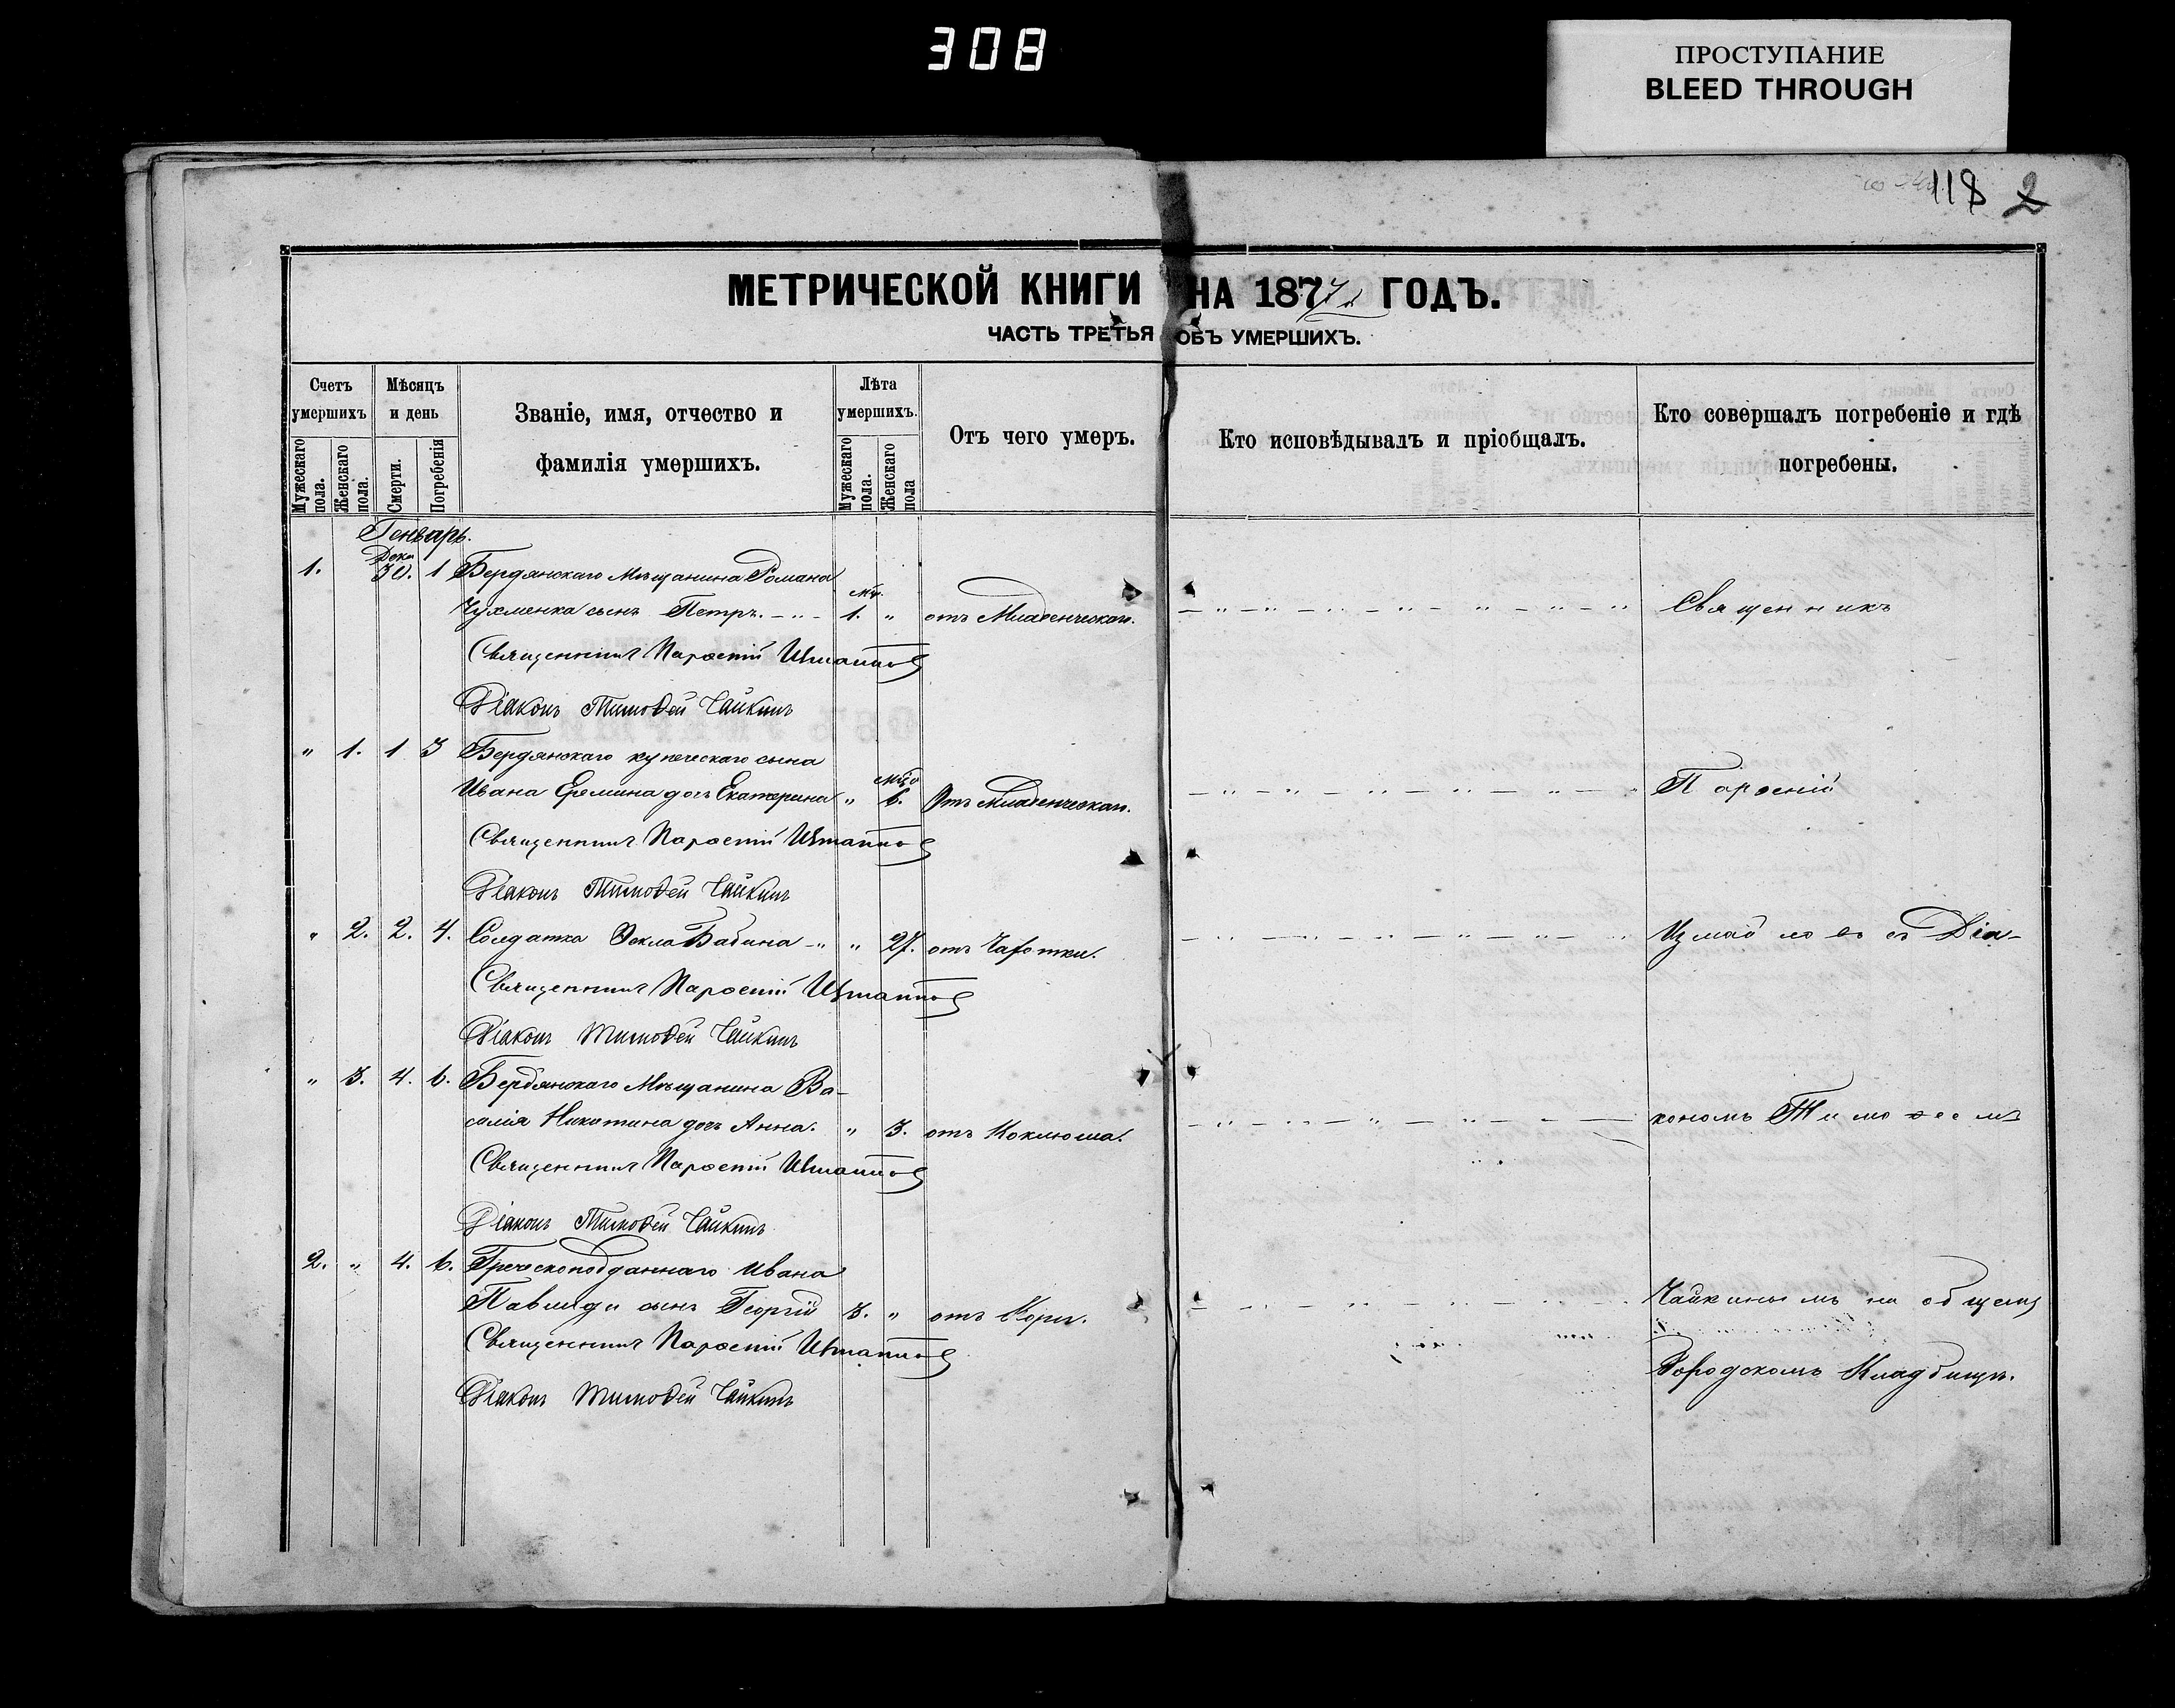 308
ПРОСТУПАНИЕ
BLEED THROUGH
118 2
МЕТРИЧЕСКОЙ КНИГИ НА 187 ГОДЪ.
ЧАСТЬ ТРЕТЬЯ ОБЪ УМЕРШИХЪ.
Счетъ умершихъ
Мужескаго пола.
Женскаго пола.
Мѣсяцъ и день
Смерти.
Погребенія
Званіе, имя, отчество и фамилія умершихъ.
Лѣта умершихъ.
Мужескаго пола.
Женскаго пола
Отъ чего умеръ.
Кто исповѣдывалъ и пріобщалъ.
Кто совершалъ погребеніе и гдѣ погребены.
Генварь.
1. Дека 30. 1 Бердянскаго Мѣщанина Романа
Чухменка сынъ Петръ. 1. " отъ Младенческой. Священникъ
Священникъ Парѳеній
Діаконъ Тимоѳей Чайкинъ
" 1. 1 3 Бердянскаго купеческаго сына
Ивана Еремина дочь Екатерина " 6. Отъ Младенческой. Парѳеній
Священникъ Парѳеній
Діаконъ Тимоѳей Чайкинъ
" 2. 2. 4. Солдатка Ѳекла Бабина " " 27. отъ Чахотки. Измайловъ съ Діа-
Священникъ Парѳеній
Діаконъ Тимоѳей Чайкинъ
" 3. 4. 6. Бердянскаго Мѣщанина Ва-
силія Никитина дочь Анна. " 3. отъ Коклюша. кономъ Тимоѳеемъ
Священникъ Парѳеній
Діаконъ Тимоѳей Чайкинъ
2. " 4. 6. Греческоподданнаго Ивана
Павлиди сынъ Георгій 3. " отъ Кори. Чайкинымъ на общемъ
Священникъ Парѳеній
Городскомъ Кладбищѣ.
Діаконъ Тимоѳей Чайкинъ